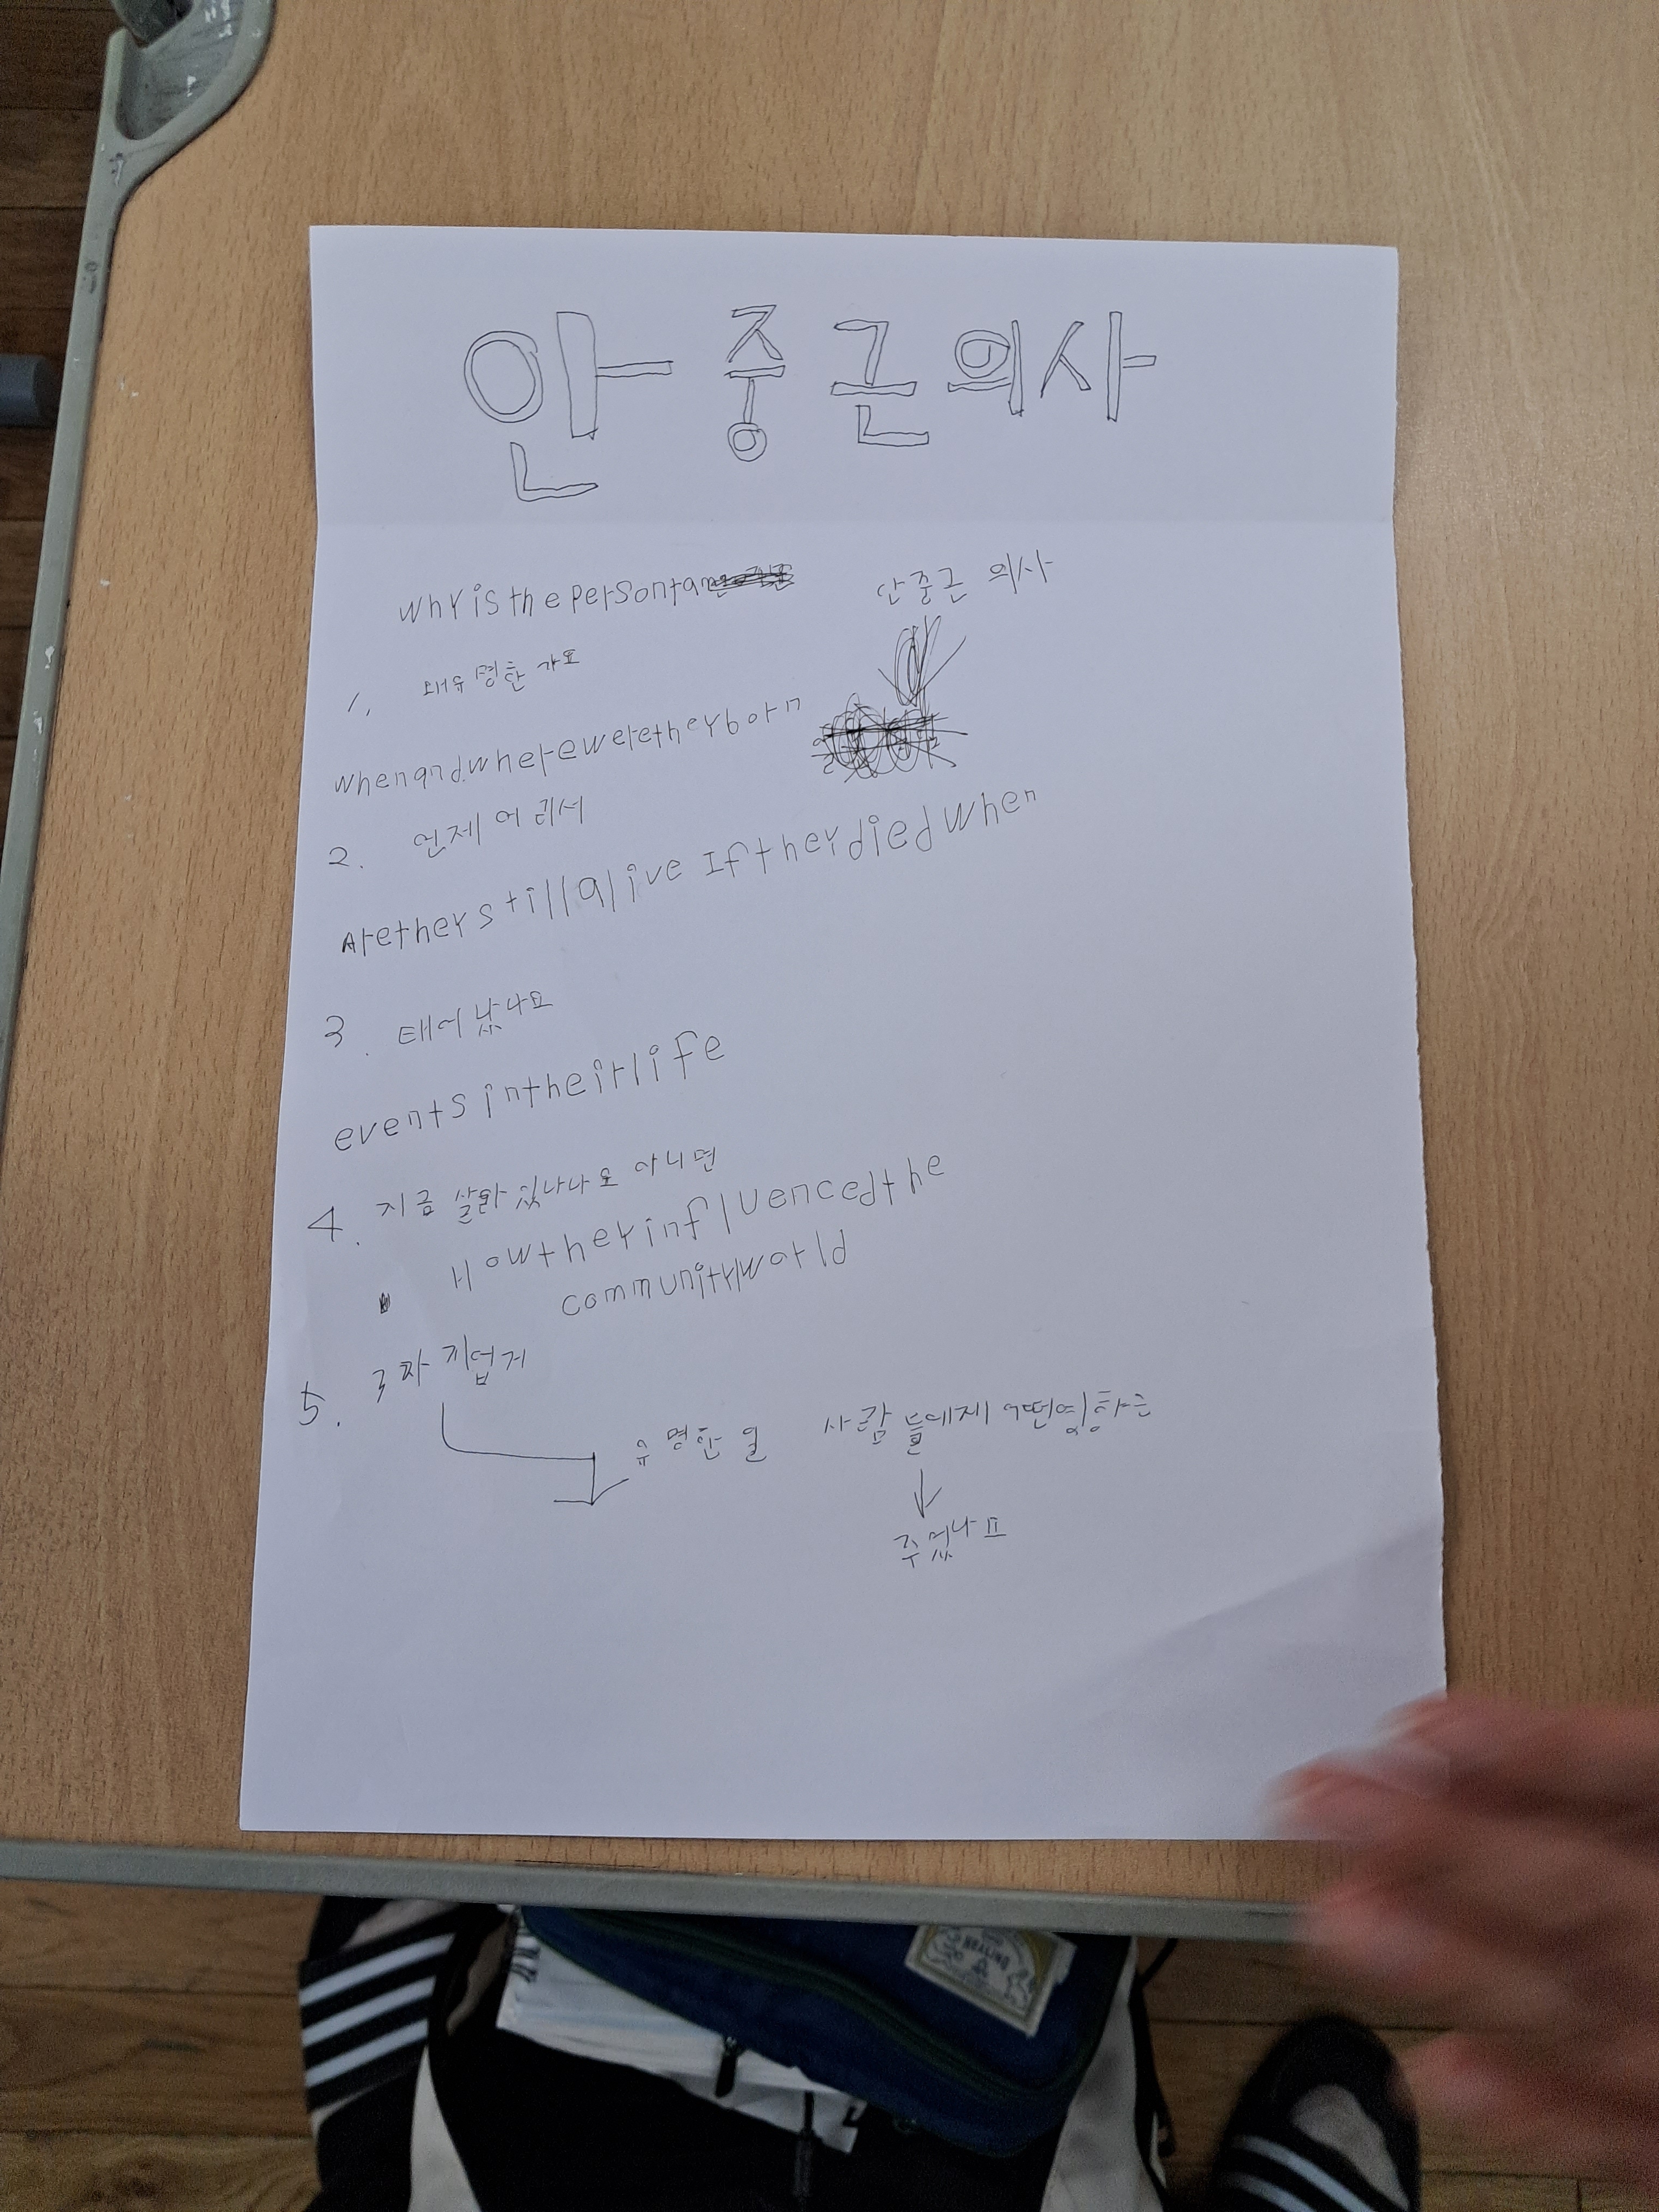 안중근의사
whyisthepersonfam
안중근 의사
1, 왜유명한가요
whenandwhereweretheyborn
2. 언제어디서
Aretheystillalive Iftheydiedwhen
3. 태어났나요
eventsintheirlife
4. 지금 살아있나나요 아니면
Howtheyinfluencedthe
communityworld
5. 3파 지업거
유명한일 사람들에제 어떤영향는
주었나요
HEALING